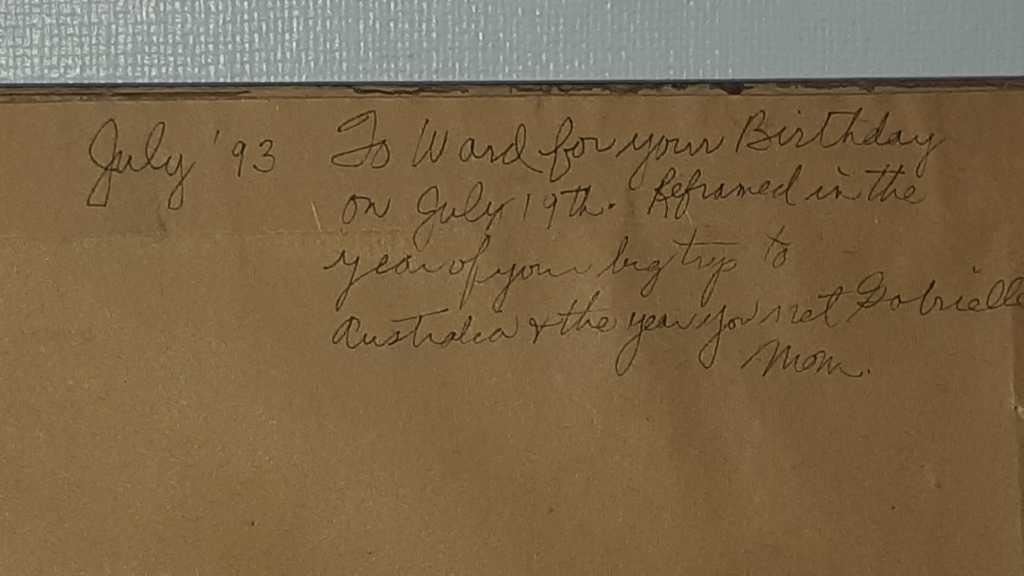 July '93 To Ward for your Birthday
on July 19th. Reframed in the
year of your big trip to
Australia & the year you met Gabrielle
Mom.